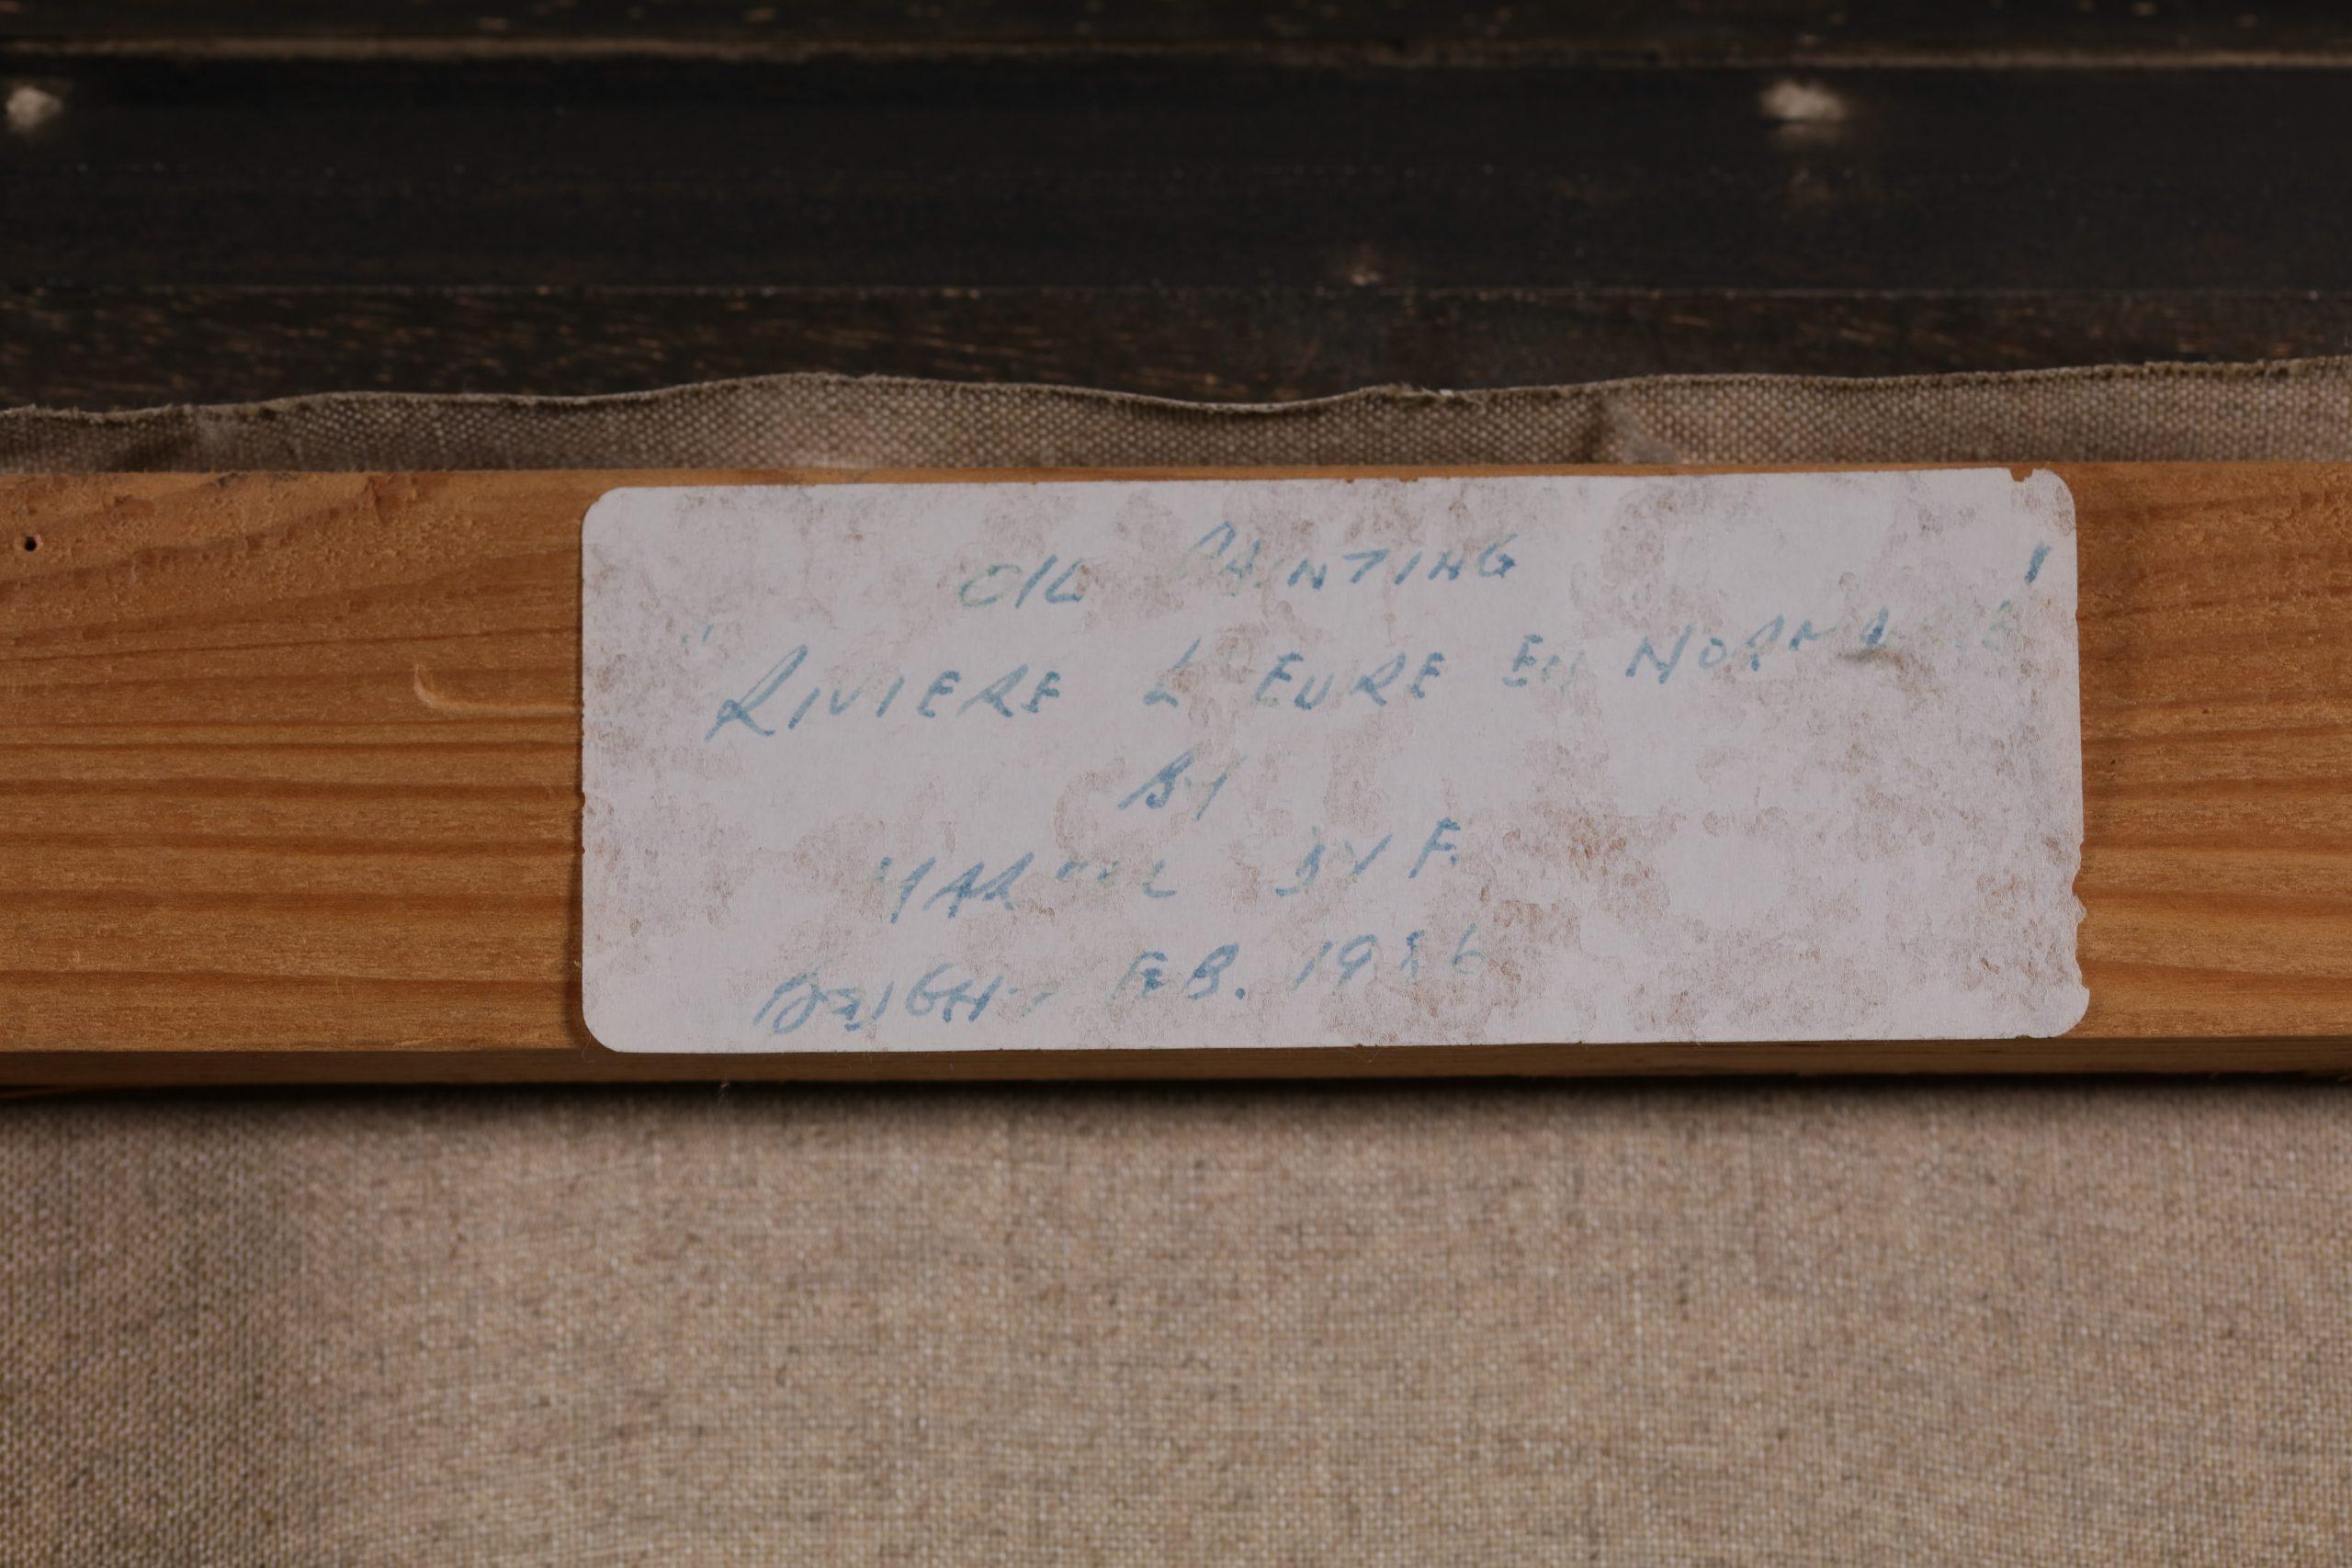 OIL PAINTING
"RIVIERE L'EURE EN NORMANDIE"
BY
MARCEL DYF.
BOUGHT FEB. 1986